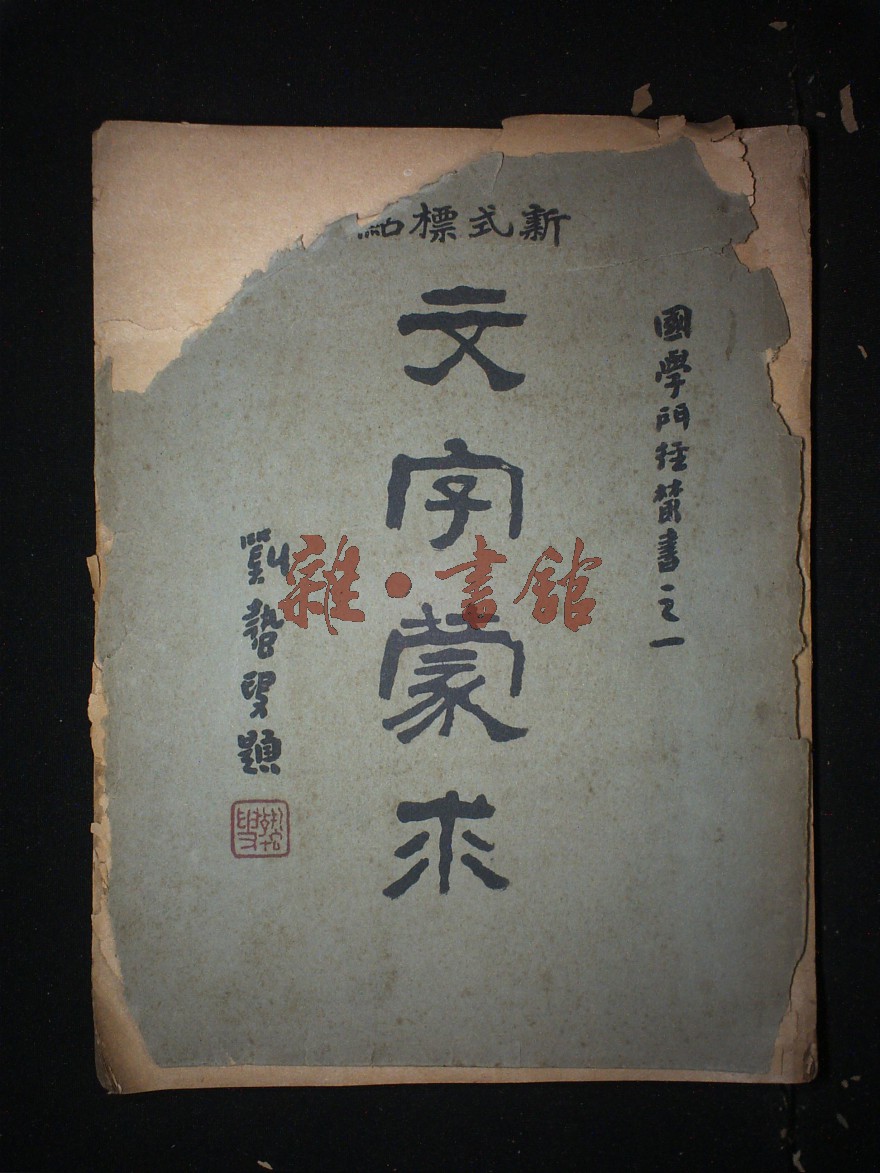 新式標點
國學門徑叢書之一
文字蒙求
劉蟄叟題
雜·書館